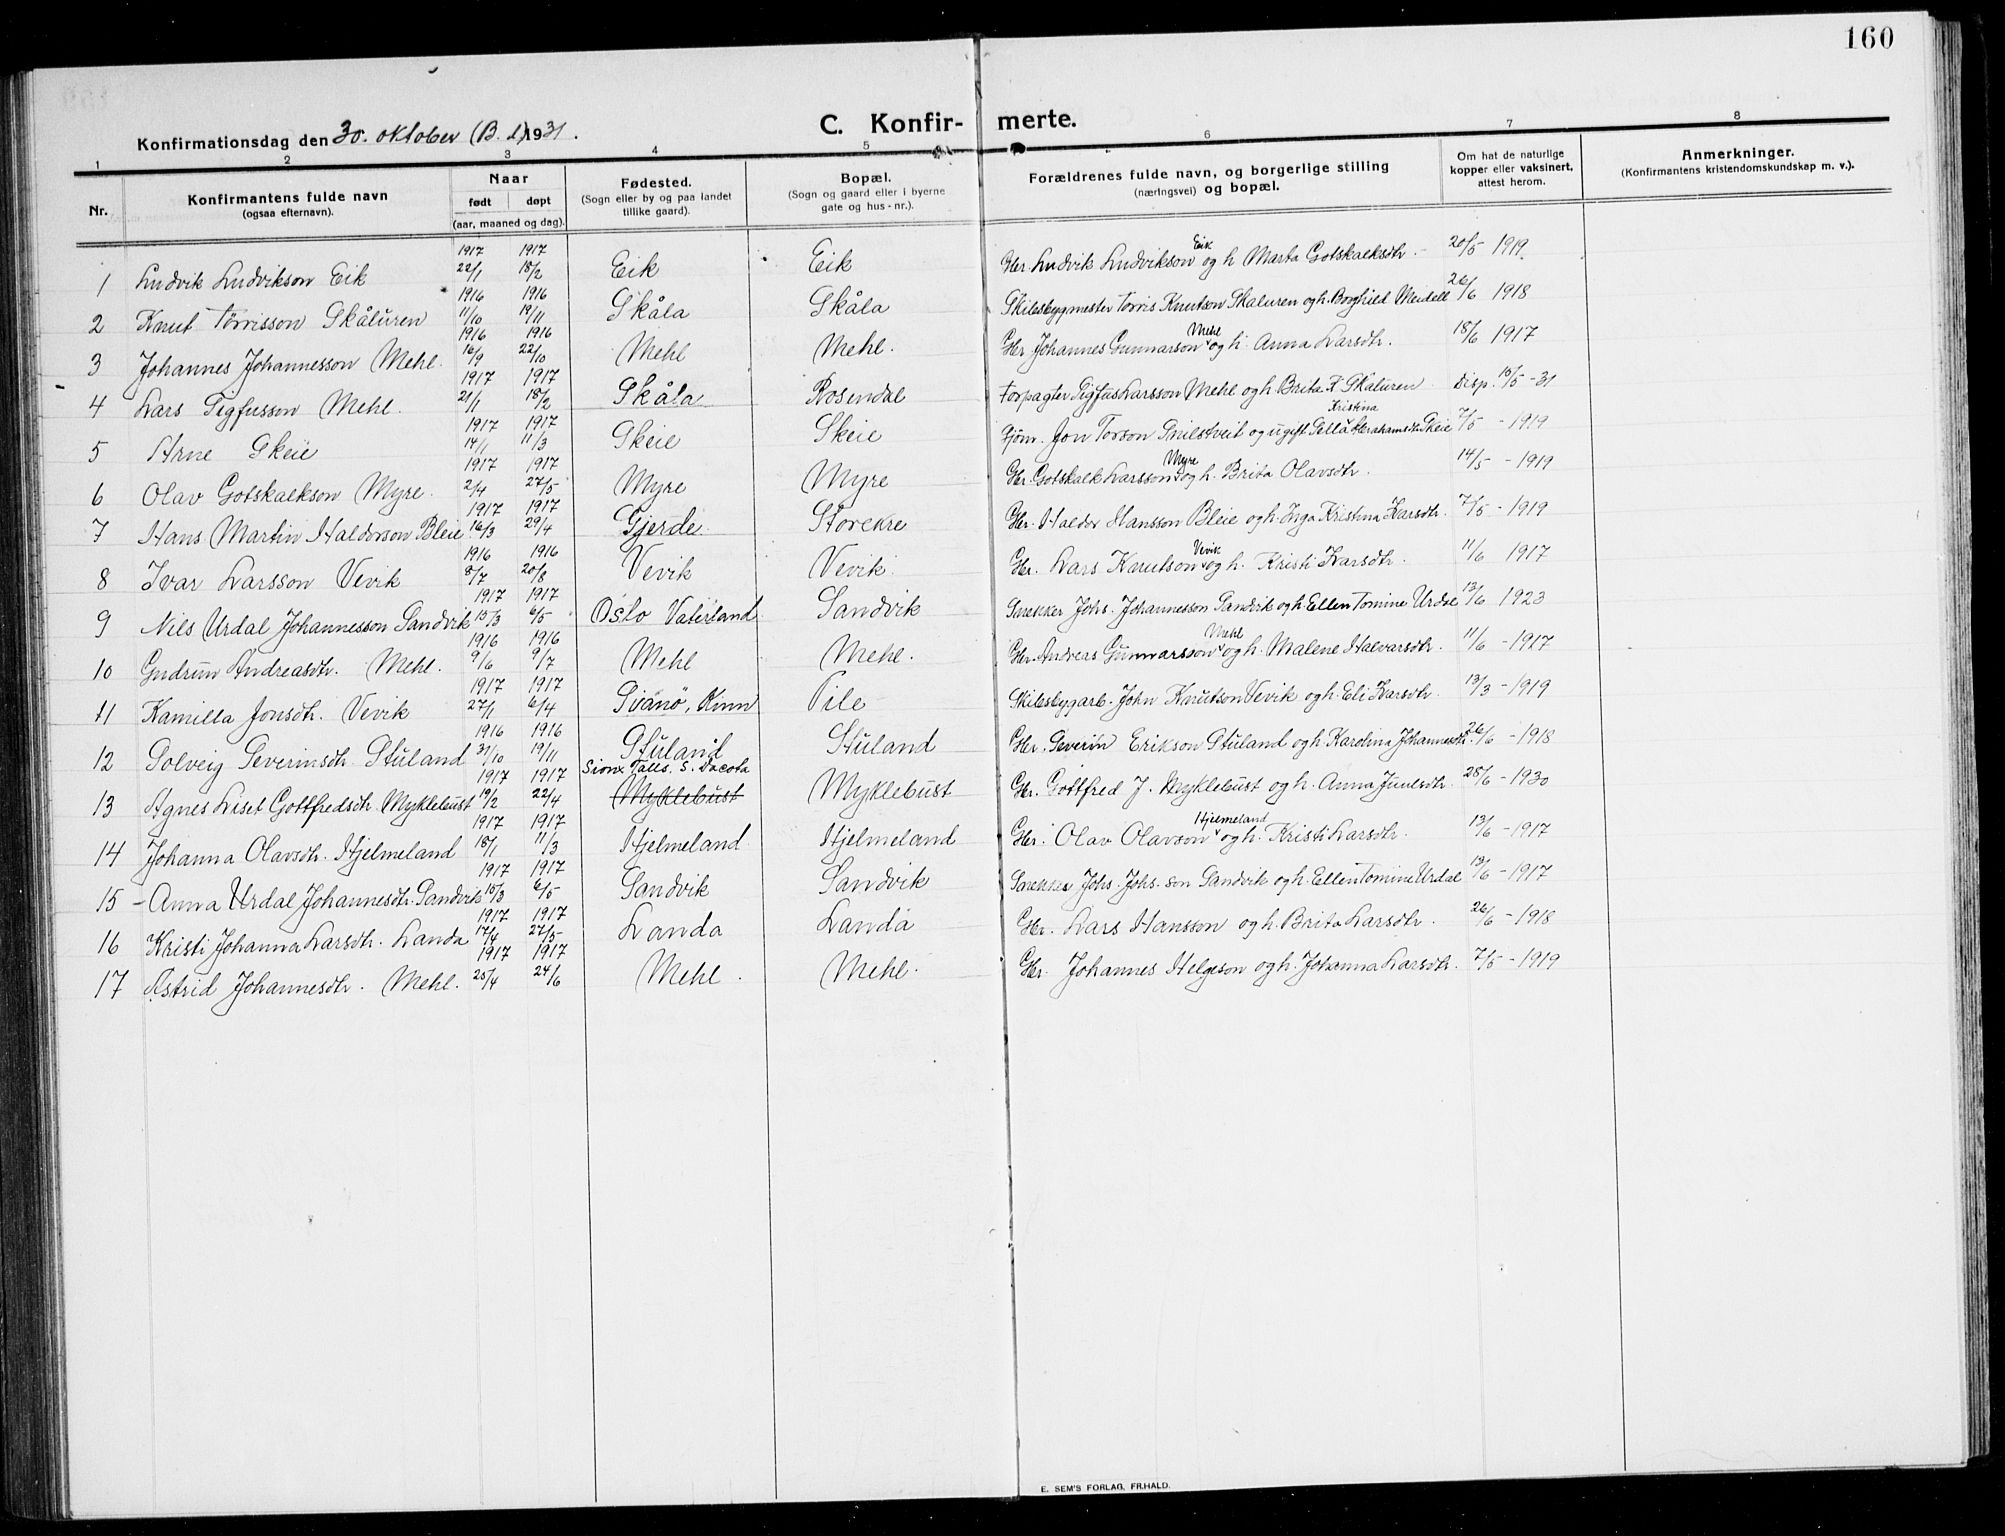 160
C. Konfir- merte.
Konfirmationsdag den 30. oktober (B. d.) 1931.
1 2 3 4 5 6 7 8
Nr. Konfirmantens fulde navn (ogsaa efternavn). Naar født døpt (aar, maaned og dag). Fødested. (Sogn eller by og paa landet tillike gaard). Bopæl. (Sogn og gaard eller i byerne gate og hus-nr.). Forældrenes fulde navn, og borgerlige stilling (næringsvei) og bopæl. Om hat de naturlige kopper eller vaksinert, attest herom. Anmerkninger. (Konfirmantens kristendomskundskap m. v.).
1 Ludvik Ludvikson Eik 1917 22/1 1917 18/2 Eik Eik Gbr. Ludvik Ludvikson Eik og h. Marta Gotskalksdtr. 20/5 1919
2 Knut Tørrisson Skåluren 1916 11/10 1916 19/11 Skåla Skåla Skibsbygmester Torris Knutson Skaluren og h. Borghild Meidell 26/6 1918
3 Johannes Johannesson Mehl. 1916 16/9 1916 22/10 Mehl Mehl. Gbr. Johannes Gunnarson Mehl og h. Anna Larsdtr. 18/6 1917
4 Lars Sigfusson Mehl. 1917 21/1 1917 18/2 Skåla Rosendal Forpagter Sigfus Larsson Mehl og h. Brita K. Skaluren Disp. 15/5 - 31
5 Arne Skeie 1917 14/1 1917 11/3 Skeie Skeie Sjøm. Jon Torson Snilstveit og ugift Sella Kristina Abrahamsdtr. Skeie 7/5 - 1919
6 Olav Gotskalkson Myre. 1917 2/4 1917 27/5 Myre Myre Gbr. Gotskalk Larsson Myre og h. Brita Olavsdtr. 14/5 - 1919
7 Hans Martin Haldorson Bleie 1917 16/3 1917 29/4 Gjerde. Storekre Gbr. Haldor Hansson Bleie og h. Inga Kristina Larsdtr. 7/5 - 1919
8 Ivar Larsson Vevik 1916 8/7 1916 20/8 Vevik Vevik Gbr. Lars Knutson Vevik og h. Kristi Larsdtr. 11/6 1917
9 Nils Urdal Johannesson Sandvik 1917 15/3 1917 6/5 Oslo Vaterland Sandvik Snekker Johs. Johannesson Sandvik og h. Ellen Tomine Urdal 13/6 1923
10 Gudrun Andreasdtr. Mehl. 1916 9/6 1916 9/7 Mehl Mehl. Gbr. Andreas Gunnarsson Mehl og h. Malene Halvarsdtr. 11/6 - 1927
11 Kamilla Jonsdtr. Vevik 1917 27/1 1917 6/4 Svanø, Kinn Pile Skibsbygarb. John Knutson Vevik og h. Eli Larsdtr. 13/3 - 1919
12 Solveig Severinsdtr. Stuland 1916 31/10 1916 19/11 Stuland Stuland Gbr. Severin Erikson Stuland og h. Karolina Johannesdtr. 26/6 - 1918
13 Agnes Liset Gottfredsdtr. Myklebust 1917 19/2 1917 22/4 Sioux Falls. S. Dacota Myklebust Myklebust Gbr. Gottfred J. Myklebust og h. Anna Juulsdtr. 28/6 - 1930
14 Johanna Olavsdtr. Hjelmeland 1917 18/1 1917 11/3 Hjelmeland Hjelmeland Gbr. Olav Olavson Hjelmeland og h. Kristi Larsdtr. 13/6 - 1917
15 Anna Urdal Johannesdtr. Sandvik 1917 15/3 1917 6/5 Sandvik Sandvik Snekker Johs. Johs.son Sandvik og h. Ellen Tomine Urdal 13/6 - 1917
16 Kristi Johanna Larsdtr. Landa 1917 17/4 1917 27/5 Landa Landa Gbr. Lars Hansson og h. Brita Larsdtr. 26/6 - 1918
17 Astrid Johannesdtr. Mehl. 1917 25/4 1917 24/6 Mehl. Mehl. Gbr. Johannes Helgeson og h. Johanna Larsdtr. 7/5 - 1919
E. SEM'S FORLAG, FR.HALD.